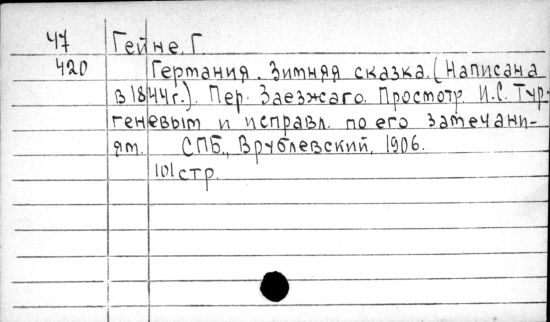 47 Гейне, Г.
420 Германия. Зимняя сказка. (Написана
в 1844г.). Пер. Заезжаго. Просмотр. И.С. Тур-
геневым и исправл. по его замечани-
ям. СПБ., Врублевский, 1906.
101 стр.